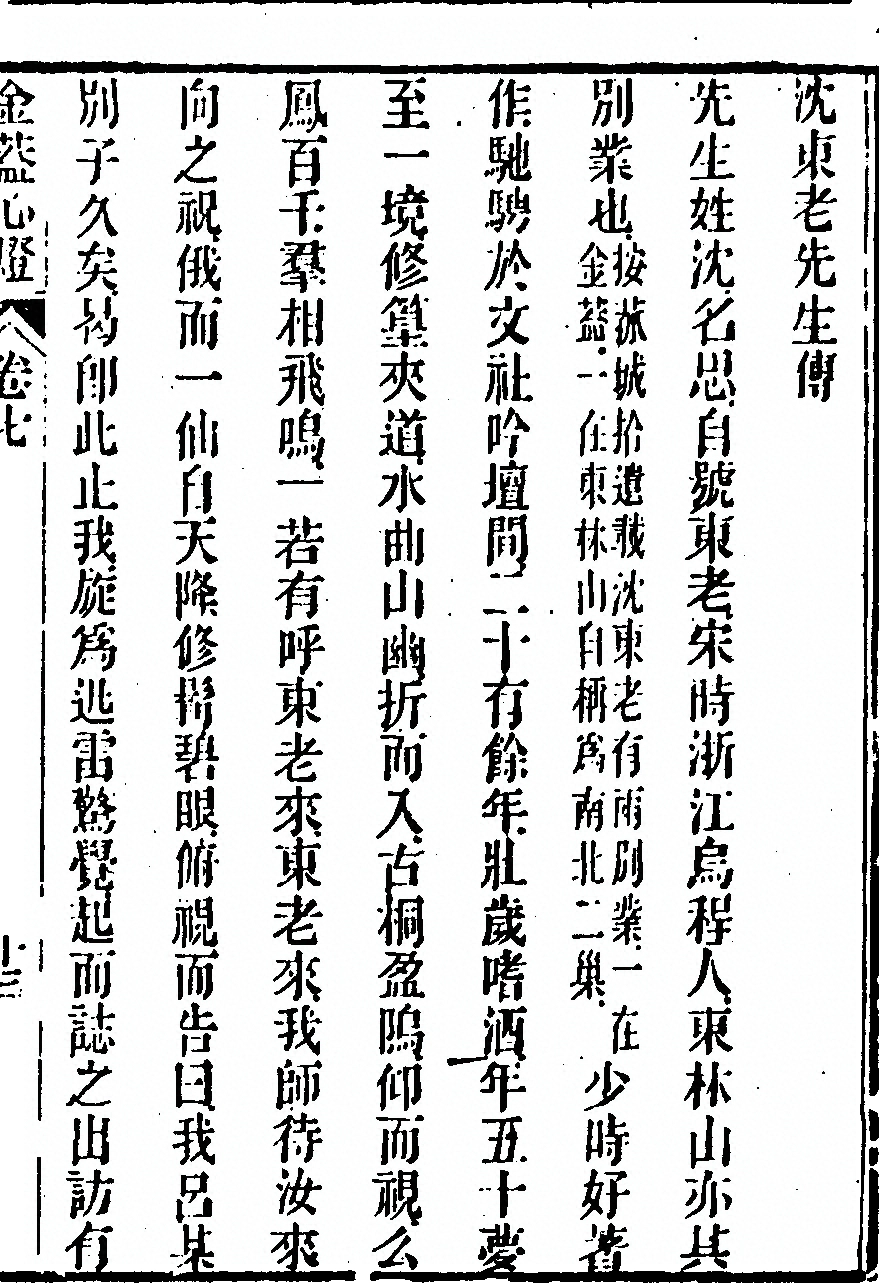 沈東老先生傳
先生姓沈名思自號東老宋時浙江烏程人東林山亦其
別業也按菰城拾遺載沈東老有兩別業一在金葢一在東林山自稱為南北二巢少時好著
作馳騁於文社吟壇間二十有餘年壯歲嗜酒年五十夢
至一境修篁夾道水曲山幽折而入古桐盈隖仰而視么
鳳百千羣相飛鳴一若有呼東老來東老來我師待汝來
向之視俄而一仙自天降修髯碧眼俯視而告曰我呂某
別子久矣曷卽此止我旋為迅雷驚覺起而誌之出訪有
金葢心燈 卷七 十三